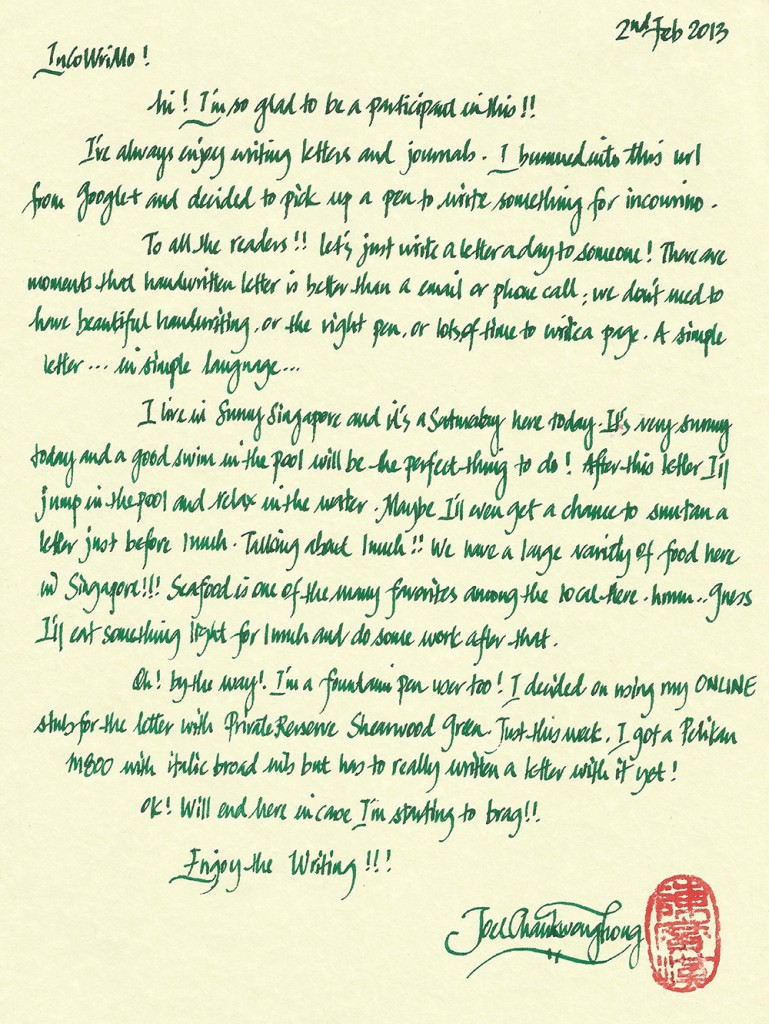 2nd Feb 2013
InCoWriMo!
hi! I'm so glad to be a participant in this!!
I've always enjoy writing letters and journals. I bummed into this url
from Google+ and decided to pick up a pen to write something for incowrimo.
To all the readers!! let's just write a letter a day to someone! There are
moments that handwritten letter is better than a email or phone call; we don't need to
have beautiful handwriting, or the right pen, or lots of time to write a page. A simple
letter... in simple language...
I live in Sunny Singapore and it's a Saturday here today. It's very sunny
today and a good swim in the pool will be the perfect thing to do! After this letter I'll
jump in the pool and relax in the water. Maybe I'll even get a chance to suntan a
letter just before lunch. Talking about lunch!! We have a large variety of food here
in Singapore!!! Seafood is one of the many favorites among the local here. hmm.. Guess
I'll eat something light for lunch and do some work after that.
Oh! by the way! I'm a fountain pen user too! I decided on using my ONLINE
stub for the letter with Private Reserve Shearwood Green. Just this week, I got a Pelikan
M800 with italic broad nib but has to really written a letter with it yet!
OK! Will end here in case I'm starting to brag!!
Enjoy the Writing!!!
Joel Chan
陳
漢